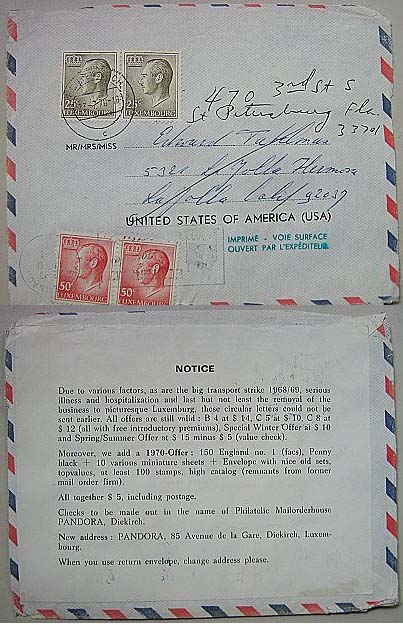 25c 25c
LUXEMBOURG LUXEMBOURG
C
470 3rd St S
St Petersburg Fla.
33701
MR/MRS/MISS
Edward
5320 La Jolla Hermosa
La Jolla Calif 92037
UNITED STATES OF AMERICA (USA)
IMPRIMÉ - VOIE SURFACE
OUVERT PAR L'EXPÉDITEUR
50c 50c
LUXEMBOURG LUXEMBOURG
NOTICE
Due to various factors, as are the big transport strike 1968/69, serious
illness and hospitalization and last but not least the removal of the
business to picturesque Luxemburg, these circular letters could not be
sent earlier. All offers are still valid : B 4 at $ 14, C 5 at $ 10, C 8 at
$ 12 (all with free introductory premiums), Special Winter Offer at $ 10
and Spring/Summer Offer at $ 15 minus $ 5 (value check).
Moreover, we add a 1970-Offer : 150 England no. 1 (facs), Penny
black + 10 various miniature sheets + Envelope with nice old sets,
topvalues, at least 100 stamps, high catalog (remnants from former
mail order firm).
All together $ 5, including postage.
Checks to be made out in the name of Philatelic Mailorderhouse
PANDORA, Diekirch.
New address : PANDORA, 85 Avenue de la Gare, Diekirch, Luxem-
bourg.
When you use return envelope, change address please.